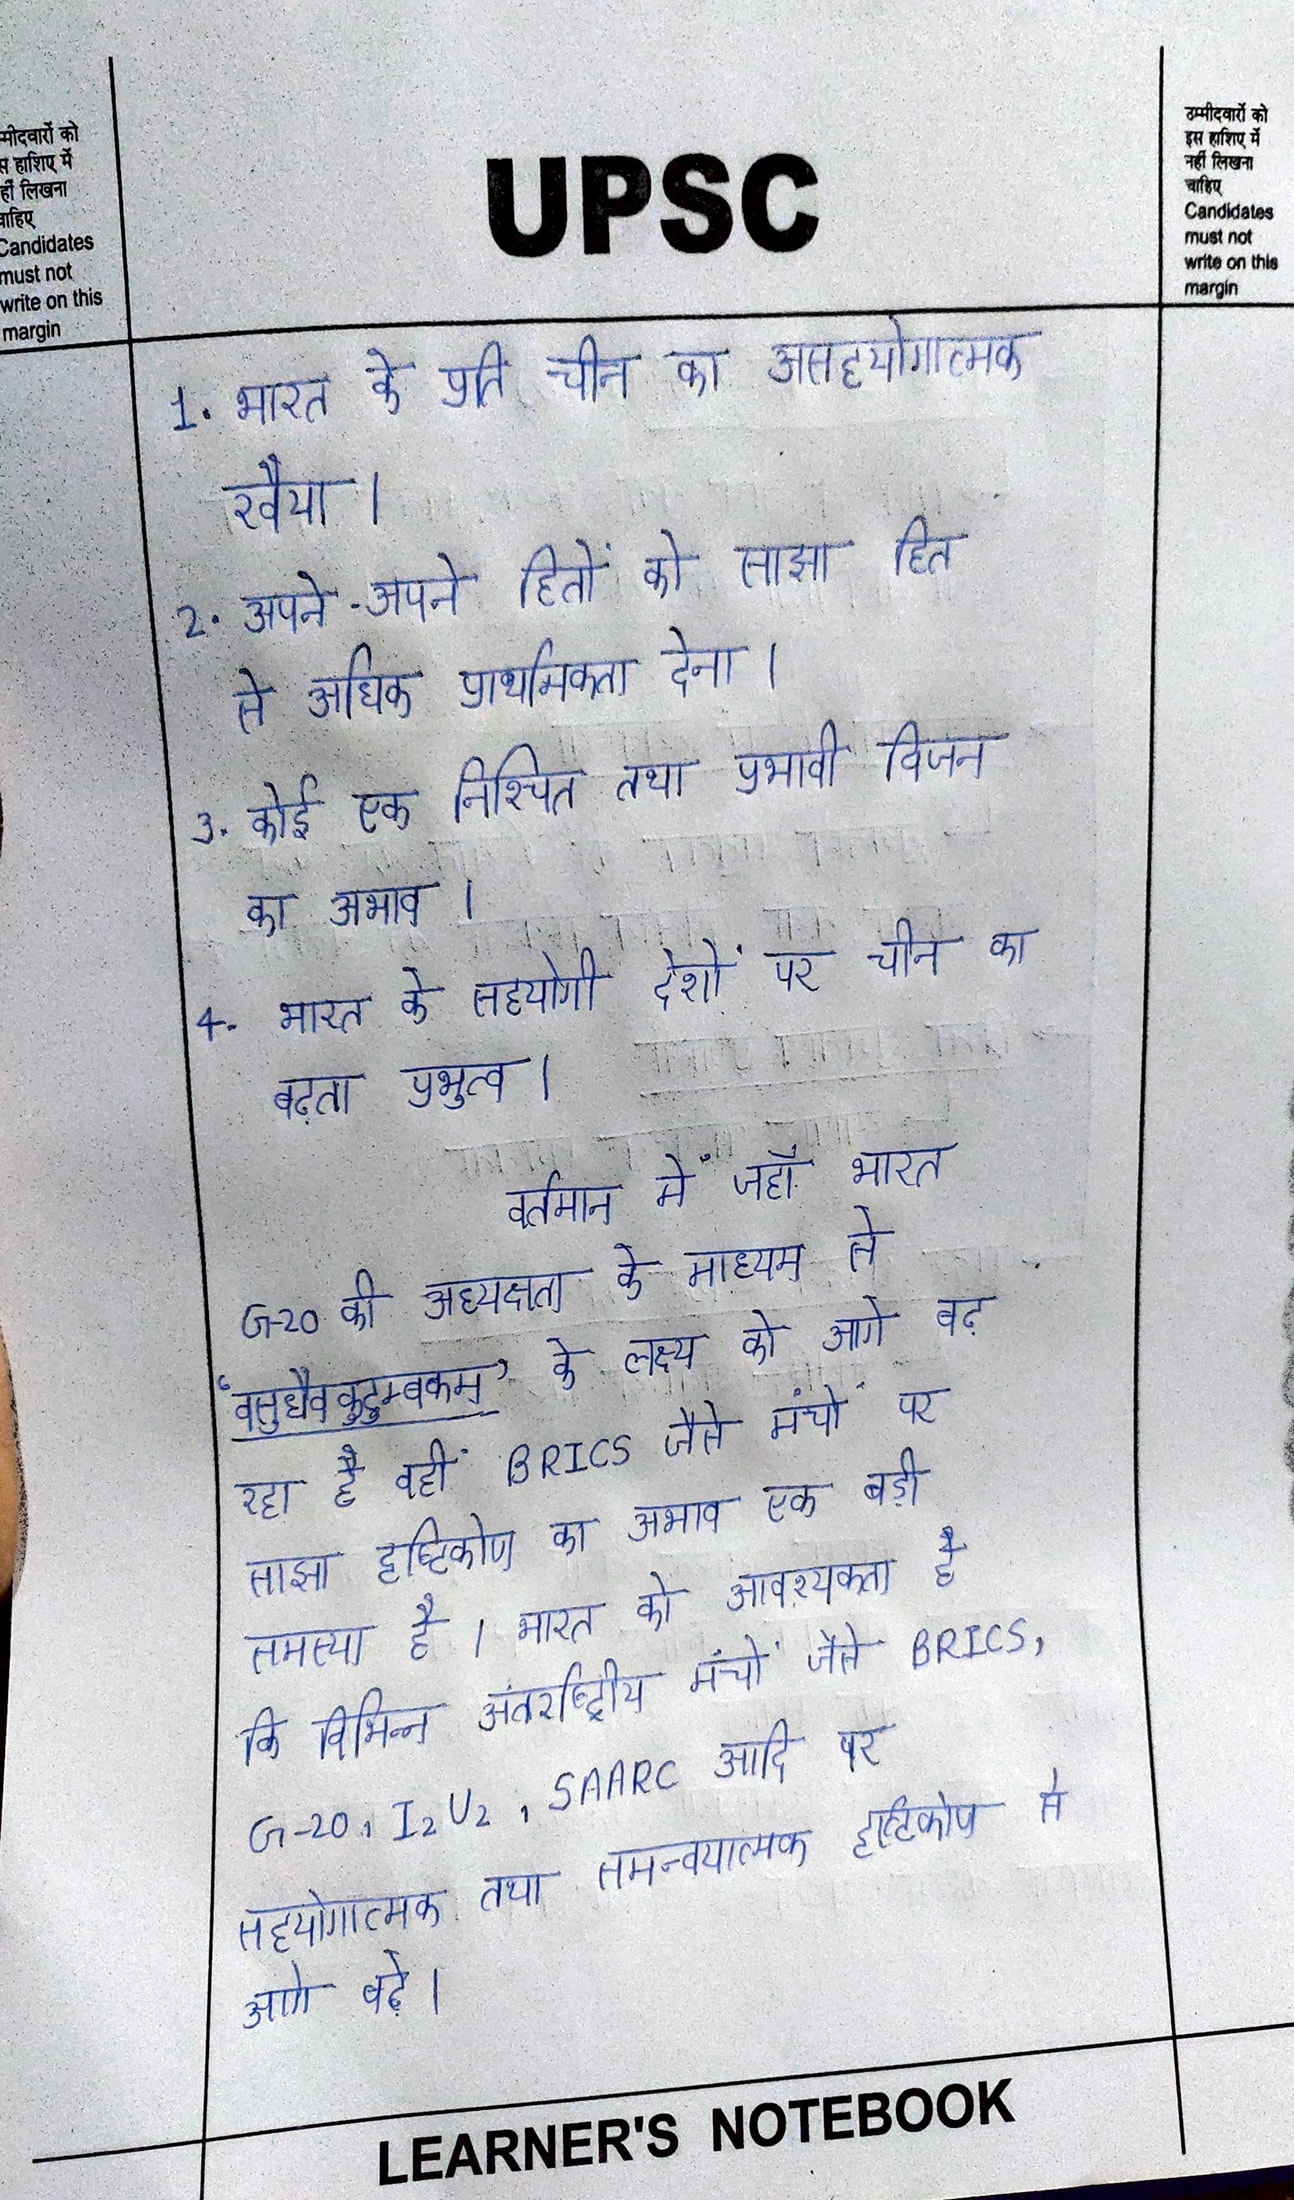 म्मीदवारों को
स हाशिए में
हीं लिखना
ाहिए
Candidates
must not
write on this
margin
UPSC
उम्मीदवारों को
इस हाशिए में
नहीं लिखना
चाहिए
Candidates
must not
write on this
margin
1. भारत के प्रति चीन का असहयोगात्मक
रवैया ।
2. अपने-अपने हितों को साझा हित
से अधिक प्राथमिकता देना ।
3. कोई एक निश्चित तथा प्रभावी विजन
का अभाव ।
4. भारत के सहयोगी देशों पर चीन का
बढ़ता प्रभुत्व ।
वर्तमान में जहाँ भारत
G-20 की अध्यक्षता के माध्यम से
'वसुधैव कुटुम्बकम्' के लक्ष्य को आगे बढ़
रहा है वहीं BRICS जैसे मंचों पर
साझा दृष्टिकोण का अभाव एक बड़ी
समस्या है । भारत को आवश्यकता है
कि विभिन्न अंतर्राष्ट्रीय मंचों जैसे BRICS,
G-20, I2U2, SAARC आदि पर
सहयोगात्मक तथा समन्वयात्मक दृष्टिकोण से
आगे बढ़े ।
LEARNER'S NOTEBOOK